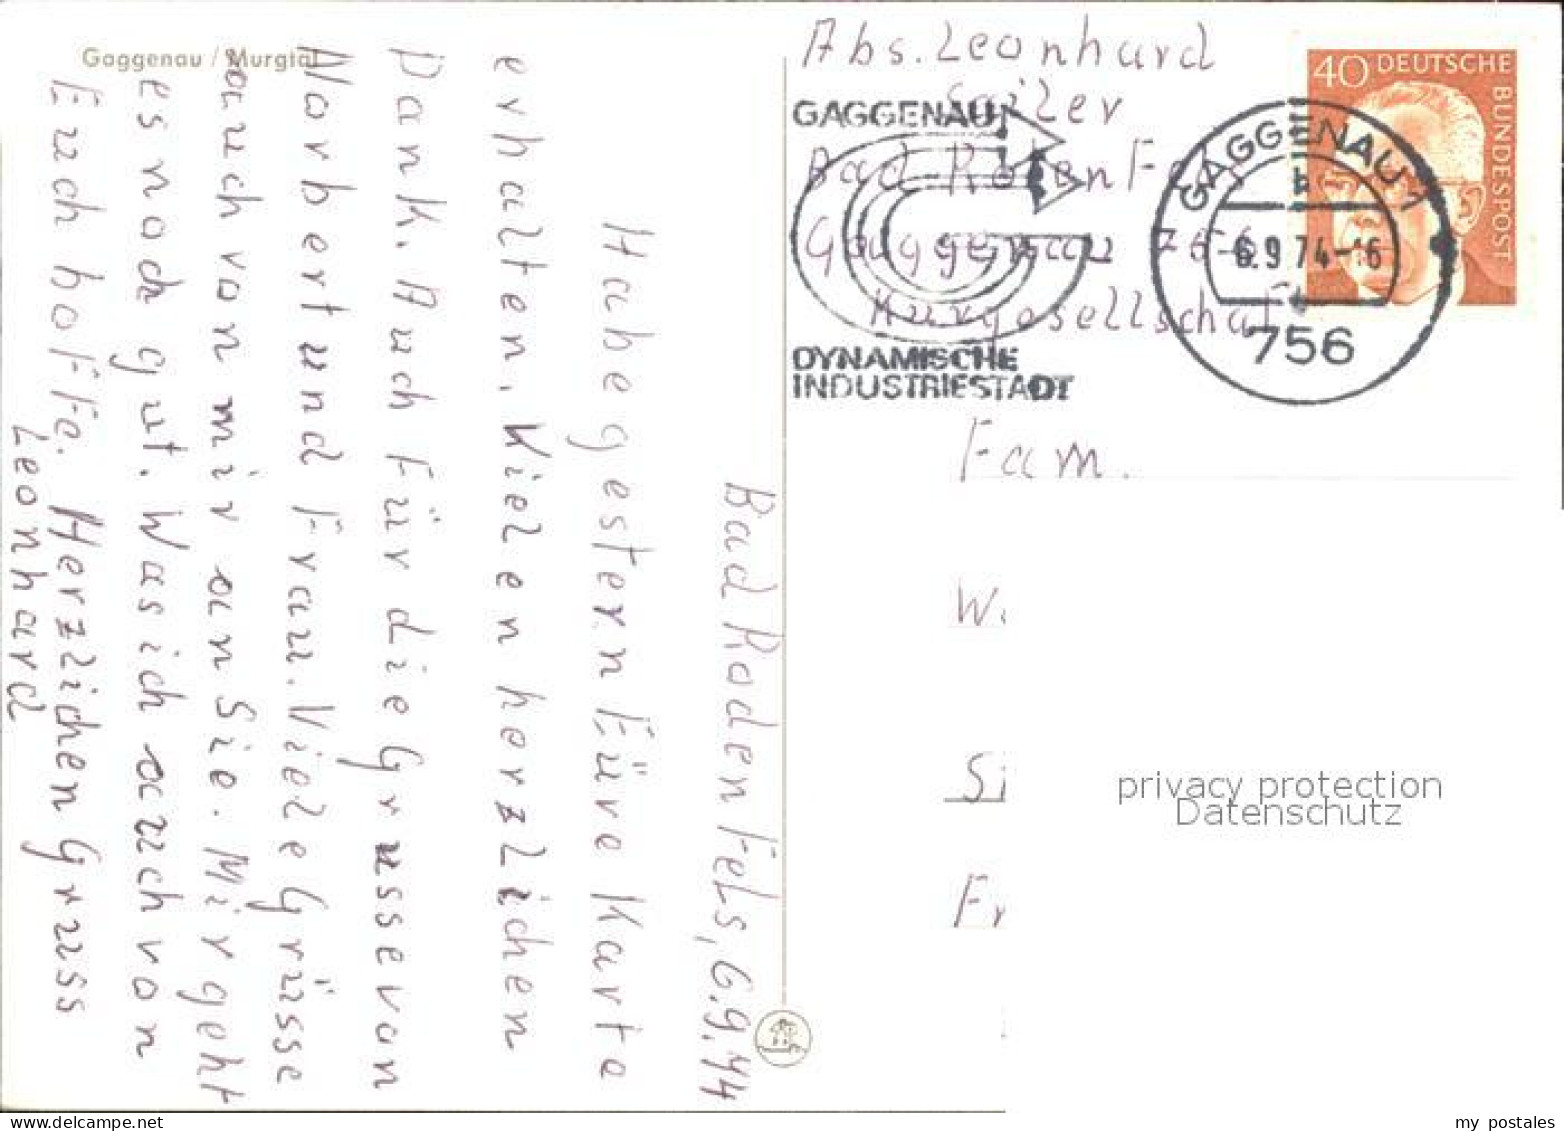 Gaggenau / Murgtal
Bad Rodenfels, 6.9.74
Habe gestern Eüre Karte
erhalten. Vielen herzlichen
Dank. Auch für die Grusse von
Norbert und Frau. Viele Grüsse
auch von mir an Sie. Mir geht
es noch gut. Was ich auch von
Euch hoffe. Herzlichen Gruss
Leonhard
Abs. Leonhard
Sailer
Bad-Rotenfels
Gaggenau 756
Murgesellschaft
GAGGENAU
DYNAMISCHE
INDUSTRIESTADT
GAGGENAU 1
b
6.9.74-16
756
40 DEUTSCHE
BUNDESPOST
Fam.
W
Si
Fr
privacy protection
Datenschutz
delcampe.net
my_postales